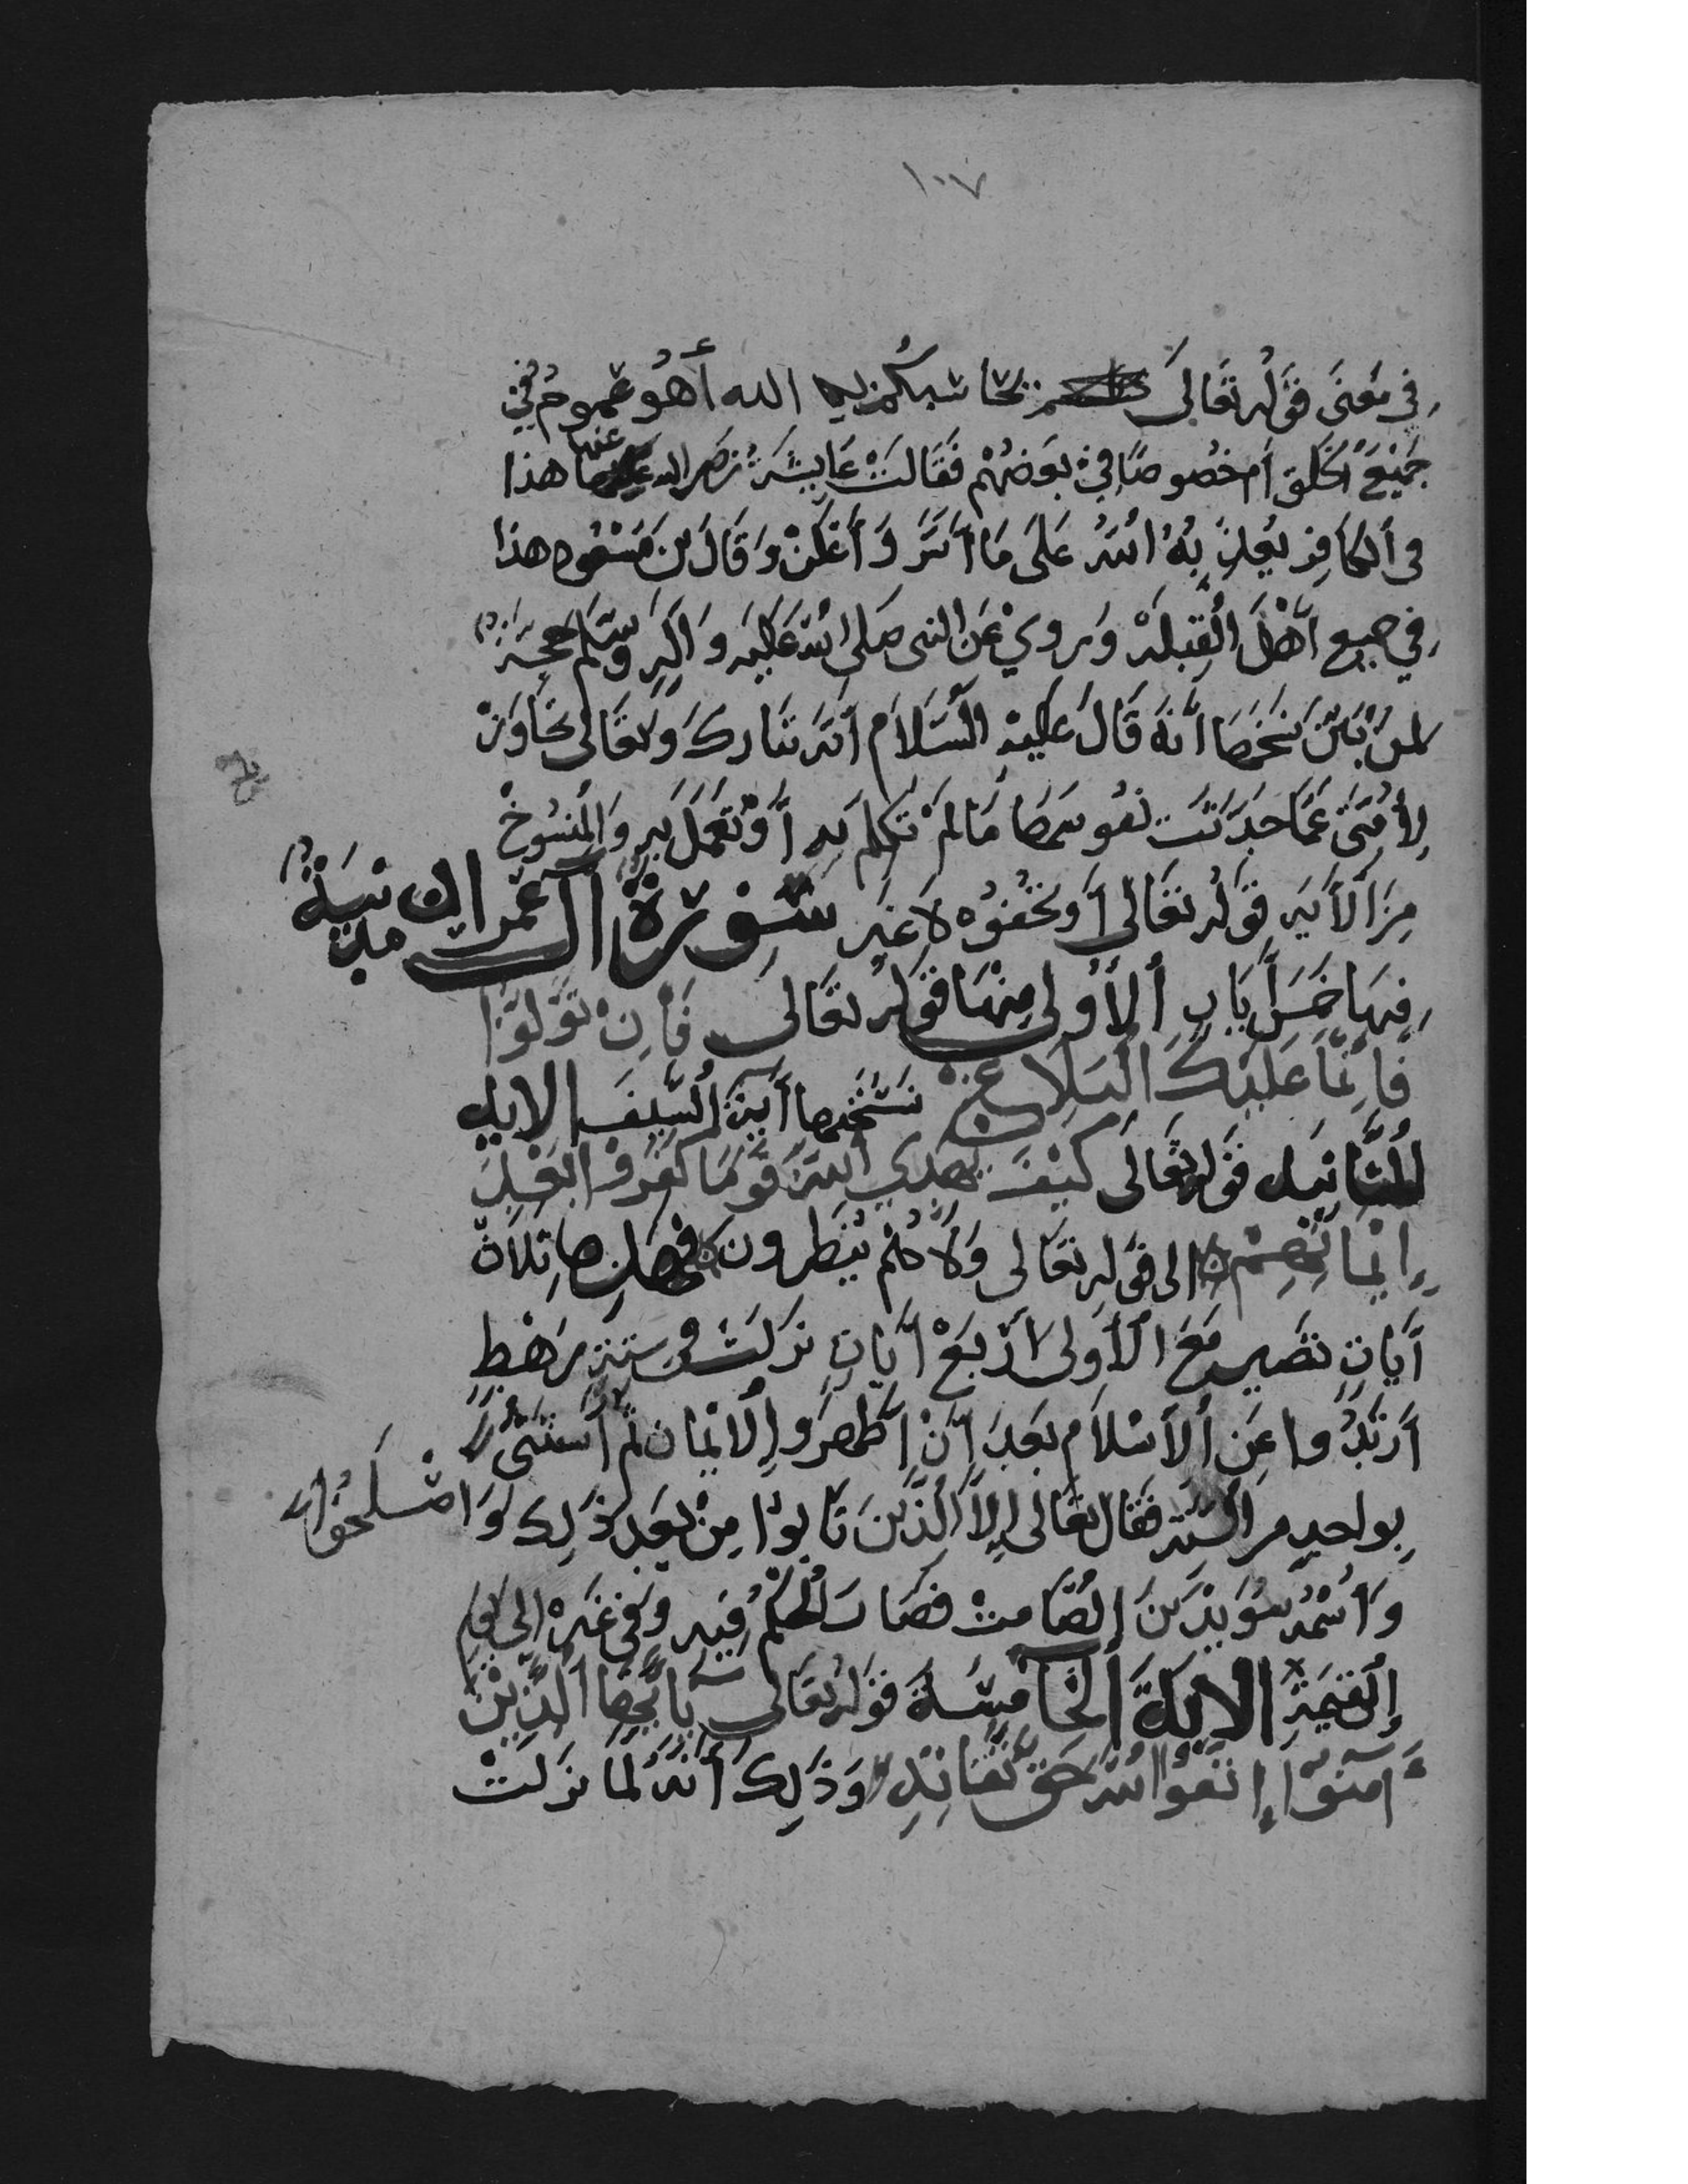 ١٠٧
في مَعنَى قَولُه تَعَالَى يحاسبكم به الله أَهُوَ عموم في
جَمِيعِ الخَلق أم خصُوصًا في بَعضهُم فَقَالَتْ عَايِشَةُ رضى الله عنها هذا
في ألكَافِر يُعَذِّبُهُ اللهُ عَلَى مَا أسَرَّ وَأَعْلَنْ وَقَالَ بن مَسْعُود هذا
في جميع أَهْلِ الْقِبْلَهْ وَرويْ عَنِ النبى صلى الله عَلَيه وَآلِهِ وَسَلَّمْ حجة
لمن بَيَّنَ نسَخَهَا أنهَ قَالَ عَلَيْهِ السَّلَام أنَّه تبَاركَ وَتعَالَى تجَاوَزَ
لِأُمَّتَى عَمَّا حَدَّثَتْ نفوسهَا مَا لَمْ تَكلم بهِ أَوْ تَعْمَلَ بهِ وَالمنسُوخْ
مِنَ الأَيَه قَولُه تَعَالى أَو تُخفُوْه لا غَير سُورَةُ آل عمران مدنيَةٌ
فِيهَا خَمسَ أَيَاتٍ ألأوُلى مِنْهَا قَولُه تعَالى فَإِن تَوَلَّوْا
فَإِنَّمَا عَلَيكَ البَلاغ نَسَخَها أيَةُ السَّيفِ الايه
الثَّانِيَه قَولُه تَعَالَى كَيْفَ يَهدِي اللهُ قَوْمًا كَفَرُوْا بَعْدَ
إِيمَانِهِمْ الى قَولِه تعَالى وَلَا هُم يُنظَرون فهَذِه ثلَاثَ
أَيَاتٍ تصَير مَعَ الأُولى أَرْبَعْ أَيَاتٍ نَزَلَتْ في ستة رَهْطٍ
أَرْتَدُّوا عِنِ ألاسْلَام بَعدَ أنْ أَظهَرُوا الايمَان ثُمَّ أَستثنىَ
بِواحدٍ من السته فقَال تعَالى إِلاَّ الَّذِينَ تَابوْا مِنْ بَعدِ ذَلِك وَاصْلَحُوا
وَاسْمُهُ سُوَيْدُ بنَ الصَّامتْ فصَارَ الْحُكمْ فِيهِ وَفي غَيرهْ الى يوم
القيمَةِ الايَةَ الخَامسَةَ قَولُه تعَالى يَا أَيُّهَا الَّذِيْنَ
أَمَنُوْا إتَّقوْا اللهَ حَقَّ تُقَاتِهِ وَذَلِكَ أَنَّهُ لَمَا نزَلَتْ